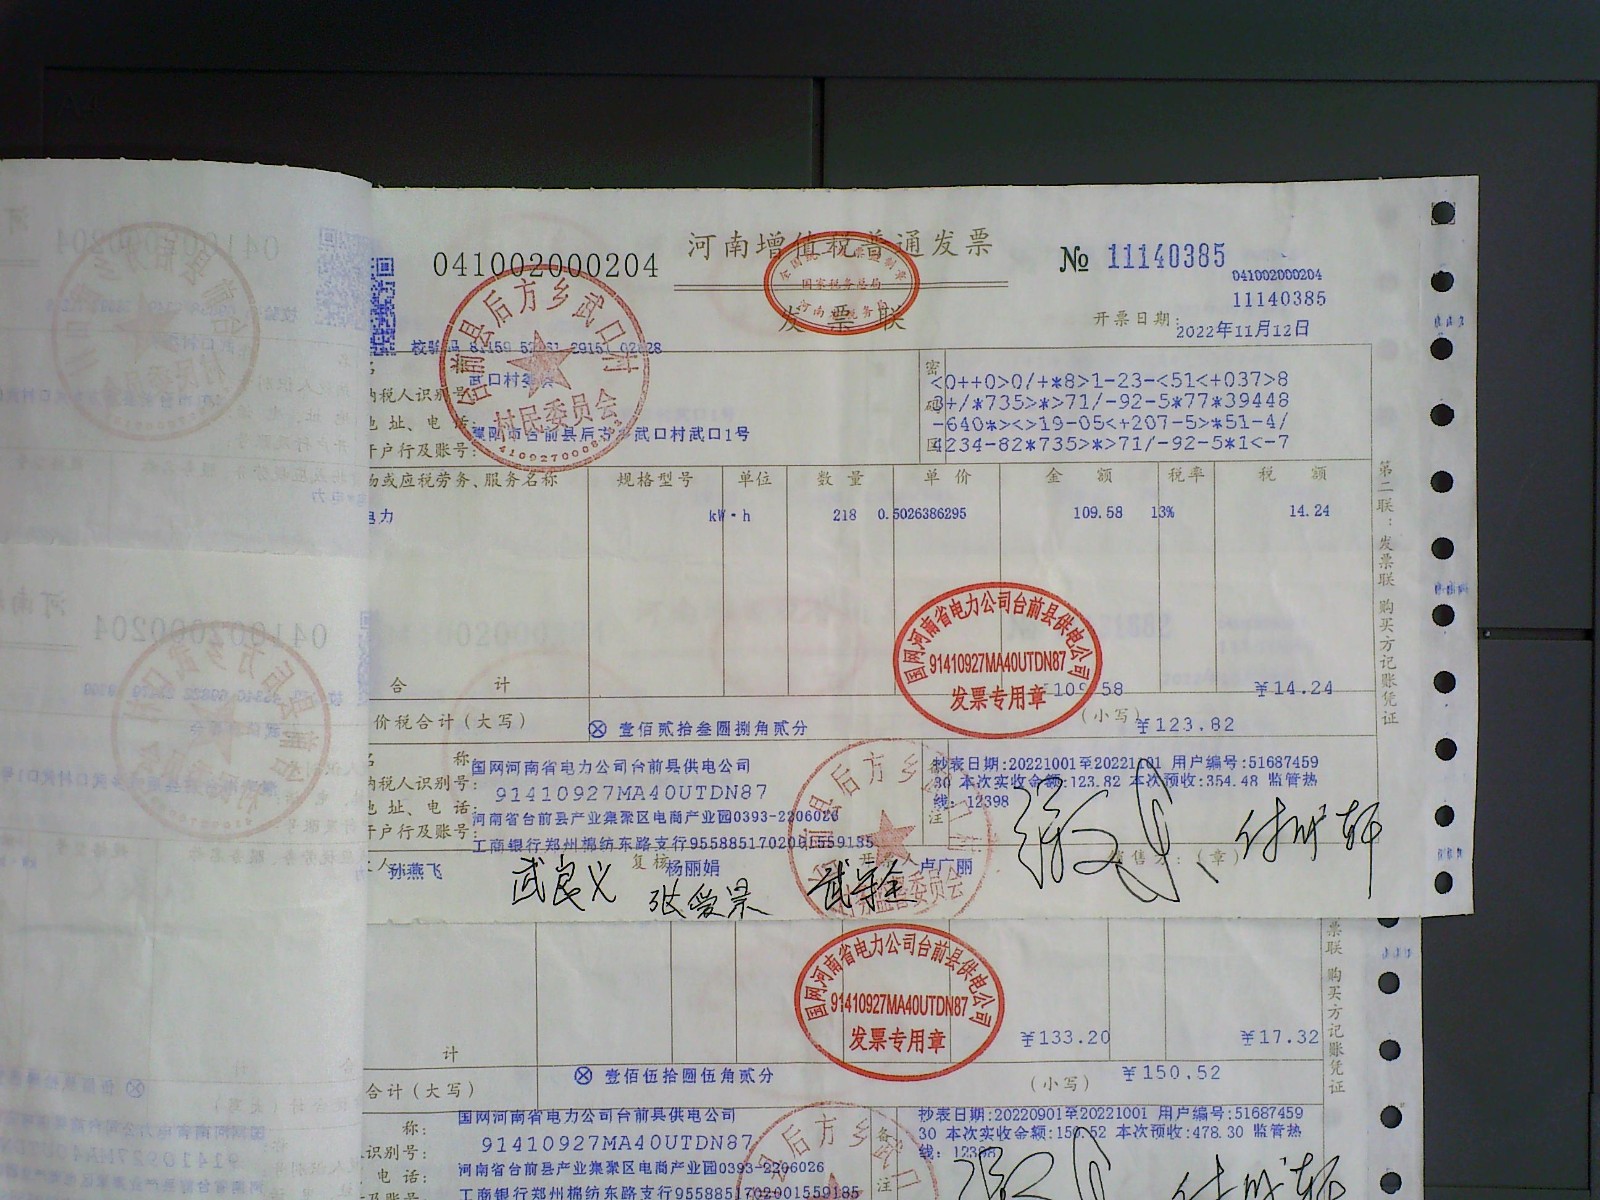 041002000204
河南增值税普通发票
发票联
№ 11140385
041002000204
11140385
开票日期：2022年11月12日
校验码
武口村委
纳税人识别号：
地址、电话：
濮阳市台前县后方乡武口村武口1号
开户行及账号：
台前县后方乡武口村
村民委员会
国家税务总局
密码
<0++0>0/+*8>1-23-<51<+037>8
3+/*735>*>71/-92-5*77*39448
-640*><>19-05<+207-5>*51-4/
4234-82*735>*>71/-92-5*1<-7
或应税劳务、服务名称 规格型号 单位 数量 单价 金额 税率 税额
电力 kW·h 218 0.5026386295 109.58 13% 14.24
合计 ¥14.24
价税合计(大写) ⊗ 壹佰贰拾叁圆捌角贰分 (小写) ¥123.82
国网河南省电力公司台前县供电公司
91410927MA40UTDN87
发票专用章
称：国网河南省电力公司台前县供电公司
纳税人识别号：91410927MA40UTDN87
地址、电话：河南省台前县产业集聚区电商产业园0393-2206026
开户行及账号：工商银行郑州棉纺东路支行9558851702001559185
备注
抄表日期:20221001至20221101 用户编号:51687459
30 本次实收金额:123.82 本次预收:354.48 监管热
线：12398
孙燕飞 复核 杨丽娟 开票人 卢广丽 销售方：(章)
武良义 张爱景
第二联：发票联 购买方记账凭证
国网河南省电力公司台前县供电公司
91410927MA40UTDN87
发票专用章
计 ¥133.20 ¥17.32
合计(大写) ⊗ 壹佰伍拾圆伍角贰分 (小写) ¥150.52
称：国网河南省电力公司台前县供电公司
识别号：91410927MA40UTDN87
电话：河南省台前县产业集聚区电商产业园0393-2206026
及账号：工商银行郑州棉纺东路支行9558851702001559185
备注
抄表日期:20220901至20221001 用户编号:51687459
30 本次实收金额:150.52 本次预收:478.30 监管热
线：12398
票联 购买方记账凭证